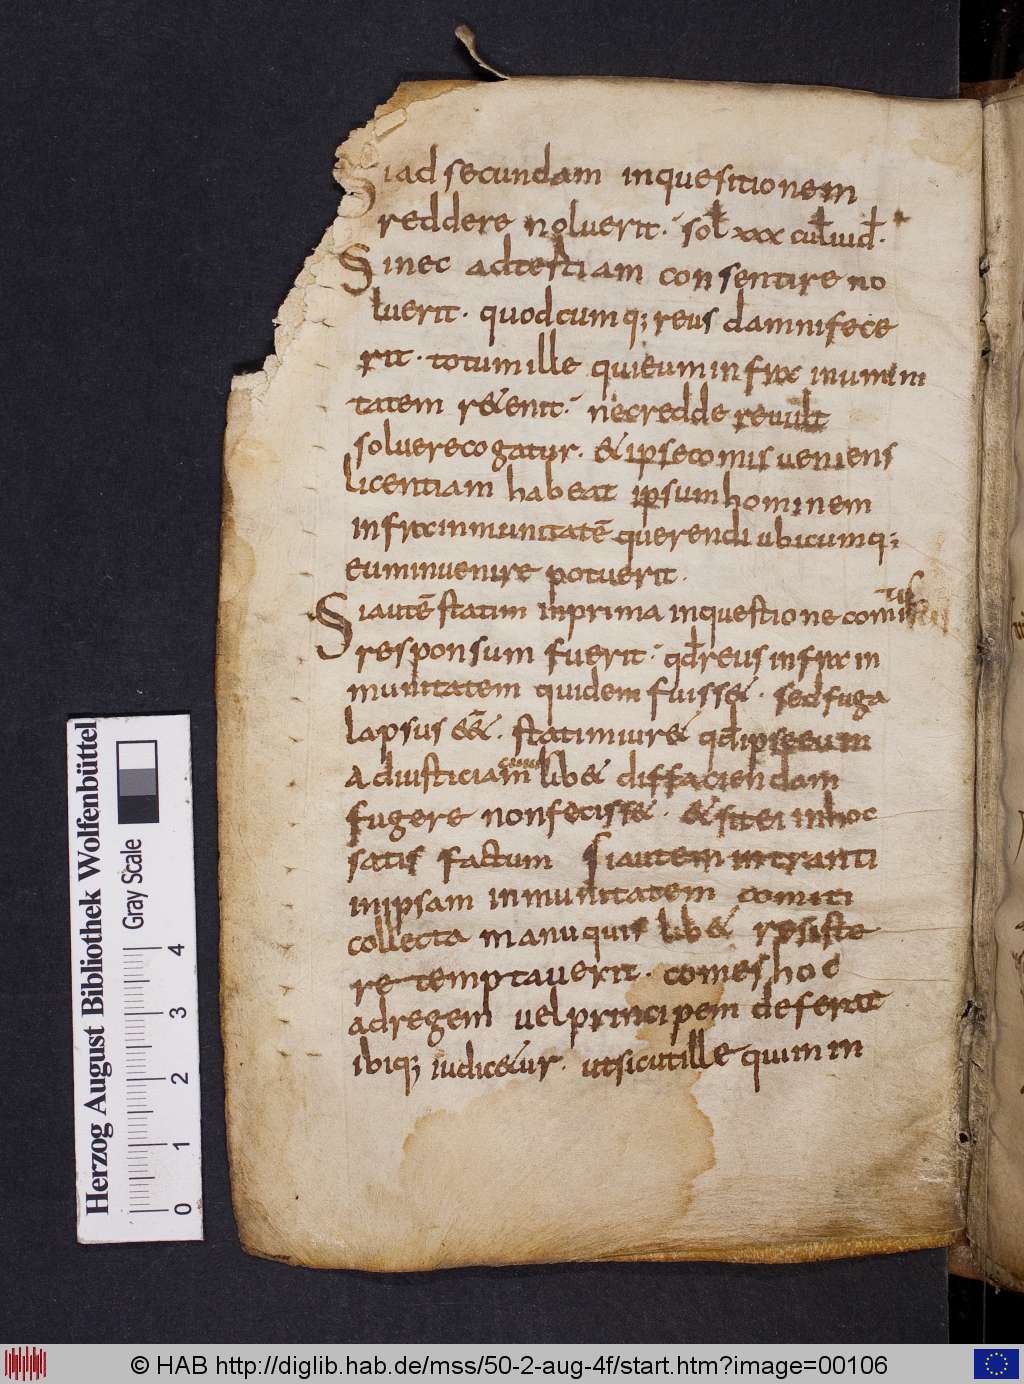 Siad secundam inquesitionem
reddere noluerit· sol xxx culiud·
Sinec adtestiam consentire no
luerit· quodcumq; reus damnifece
rit· totum ille qui eum infrx inmuni
tatem r&enit· nec redde revult
solvere cogatur· & ipse comis veniens
licentiam habeat ipsum hominem
infrx inmunitatē querendi ubicumq;
eum invenire potuerit·
Si autē statim in prima inquestione comitis
responsum fuerit· qd reus infrx in
munitatem quidem fuiss&· sed fuga
lapsus ē&· statim iur& qd ipse eum
ad iusticiam lib& diffaciendam
fugere non feciss&· & sit ei in hoc
satis factum Si autem intranti
in ipsam inmunitatem comiti
collecta manu quis lib& resiste
re temptaverit· comes hoc
ad regem vel principem deferat
ibiq; iudic&ur· ut sicut ille qui in in
Herzog August Bibliothek Wolfenbüttel
Gray Scale
0 1 2 3 4
© HAB http://diglib.hab.de/mss/50-2-aug-4f/start.htm?image=00106